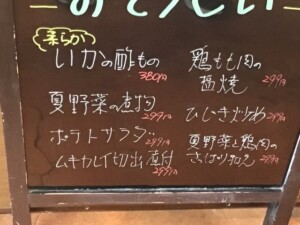 おそうざい
柔らか
いかの酢もの
380円
夏野菜の煮物
299円
ポテトサラダ
299円
ムキカレイ切出し煮付
299円
鶏もも肉の
醤焼
299円
ひじき炒め
299円
夏野菜と鶏肉の
さっぱり和え
299円